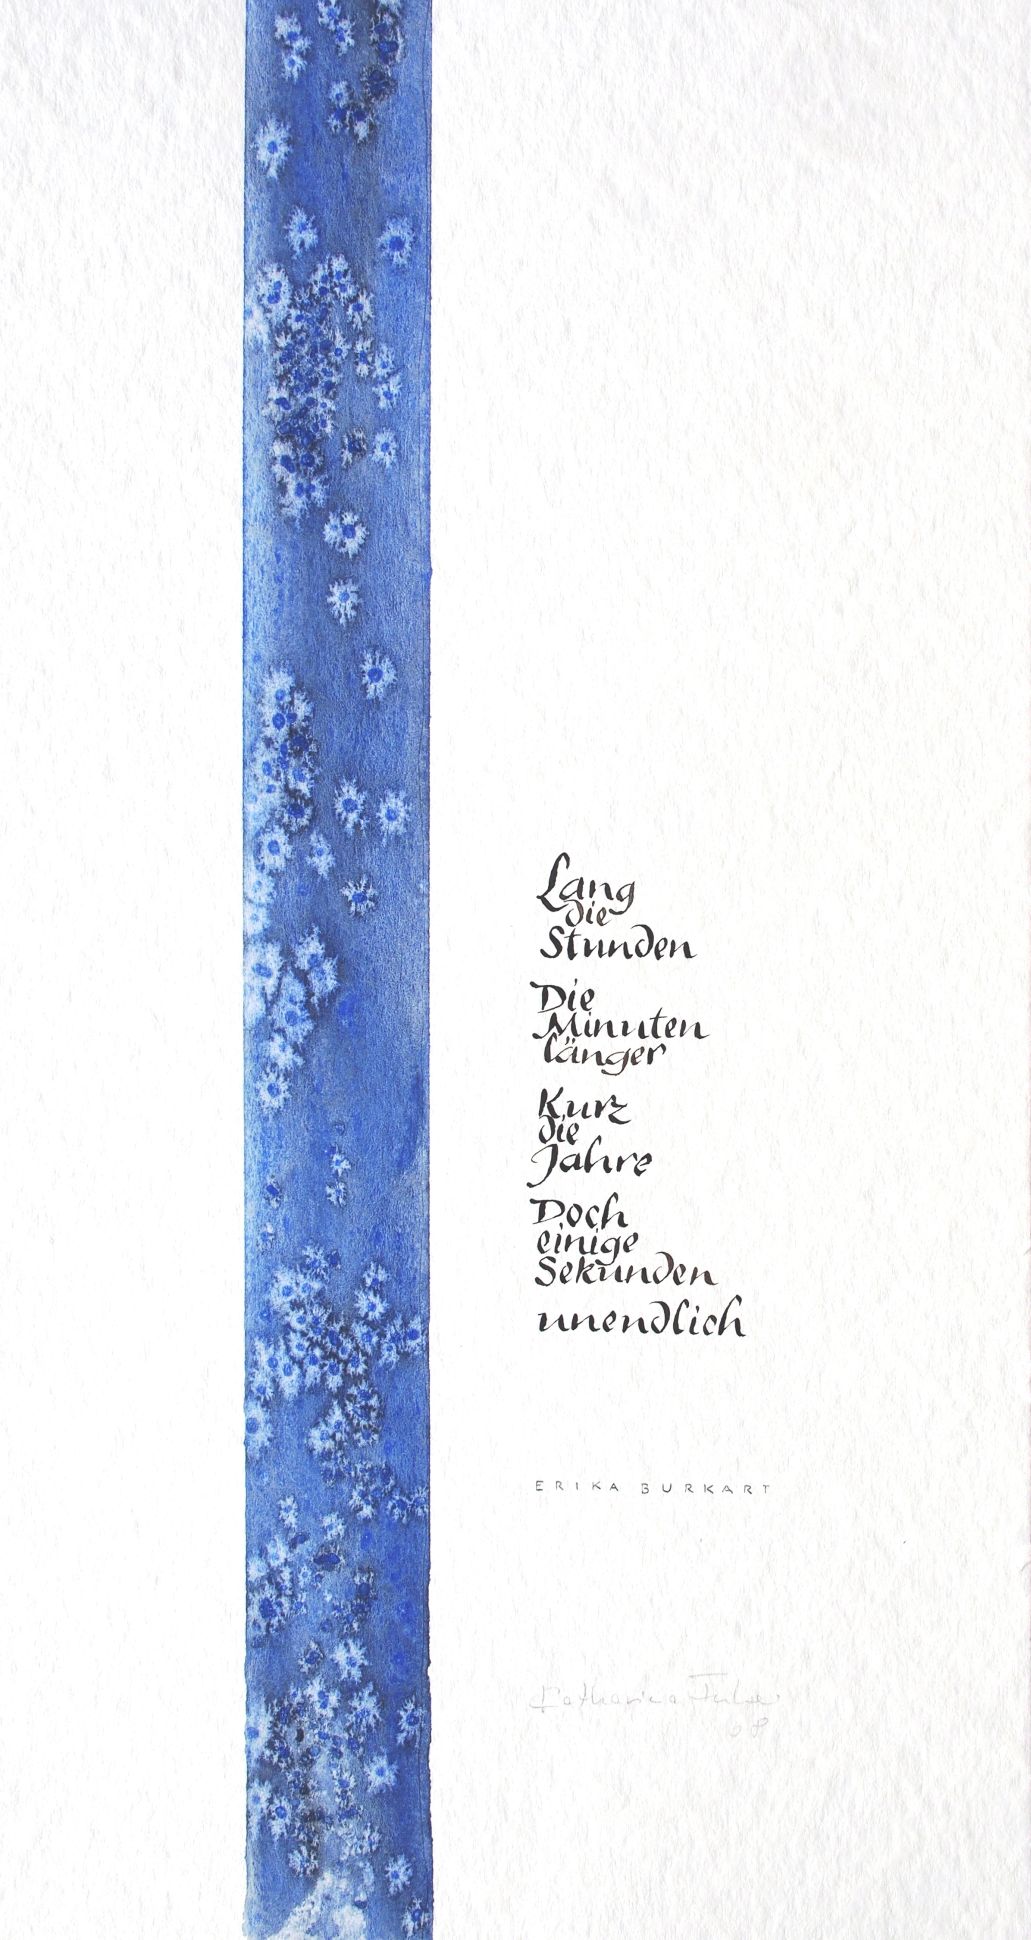 Lang
die
Stunden
Die
Minuten
länger
Kurz
die
Jahre
Doch
einige
Sekunden
unendlich
ERIKA BURKART
Katharina
08